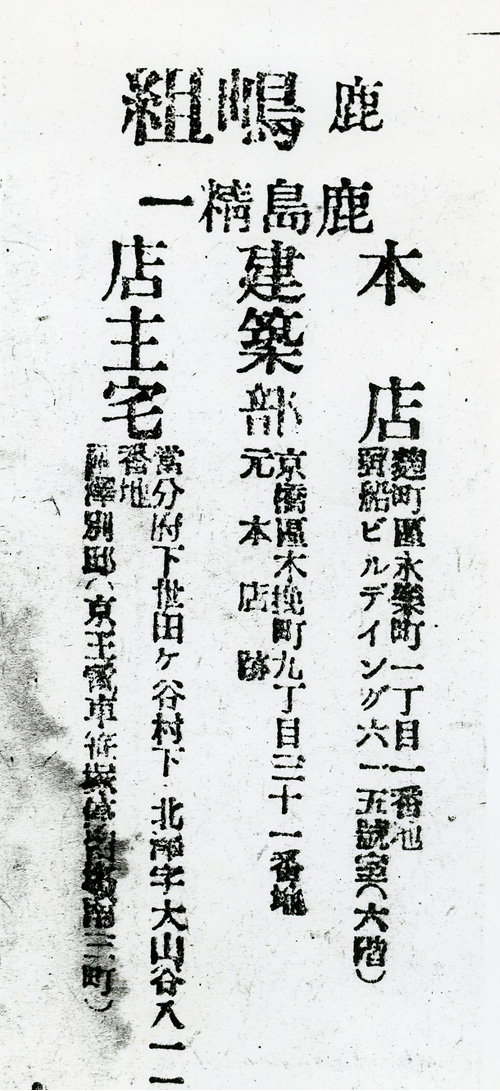 鹿嶋組
鹿島精一
本店
麹町區永樂町一丁目一番地
郵船ビルデイング六一五號室(六階)
建築部
京橋區木挽町九丁目三十一番地
元本店跡
店主宅
當分府下世田ヶ谷村下北澤字大山谷八一一
番地
澤別邸(京王電車笹塚停留場南三町)